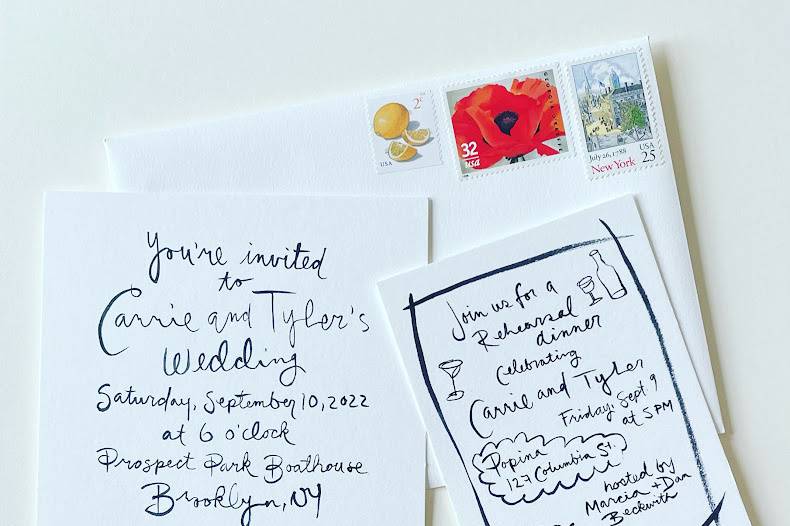 2¢
USA
32
usa
July 26, 1788
USA
New York 25
You're invited
to
Carrie and Tyler's
Wedding
Saturday, September 10, 2022
at 6 o'clock
Prospect Park Boathouse
Brooklyn, NY
Join us for a
Rehearsal
dinner
Celebrating
Carrie and Tyler
Friday, Sept. 9
at 5 PM
Popina
127 Columbia St.
hosted by
Marcia + Dan
Beckwith